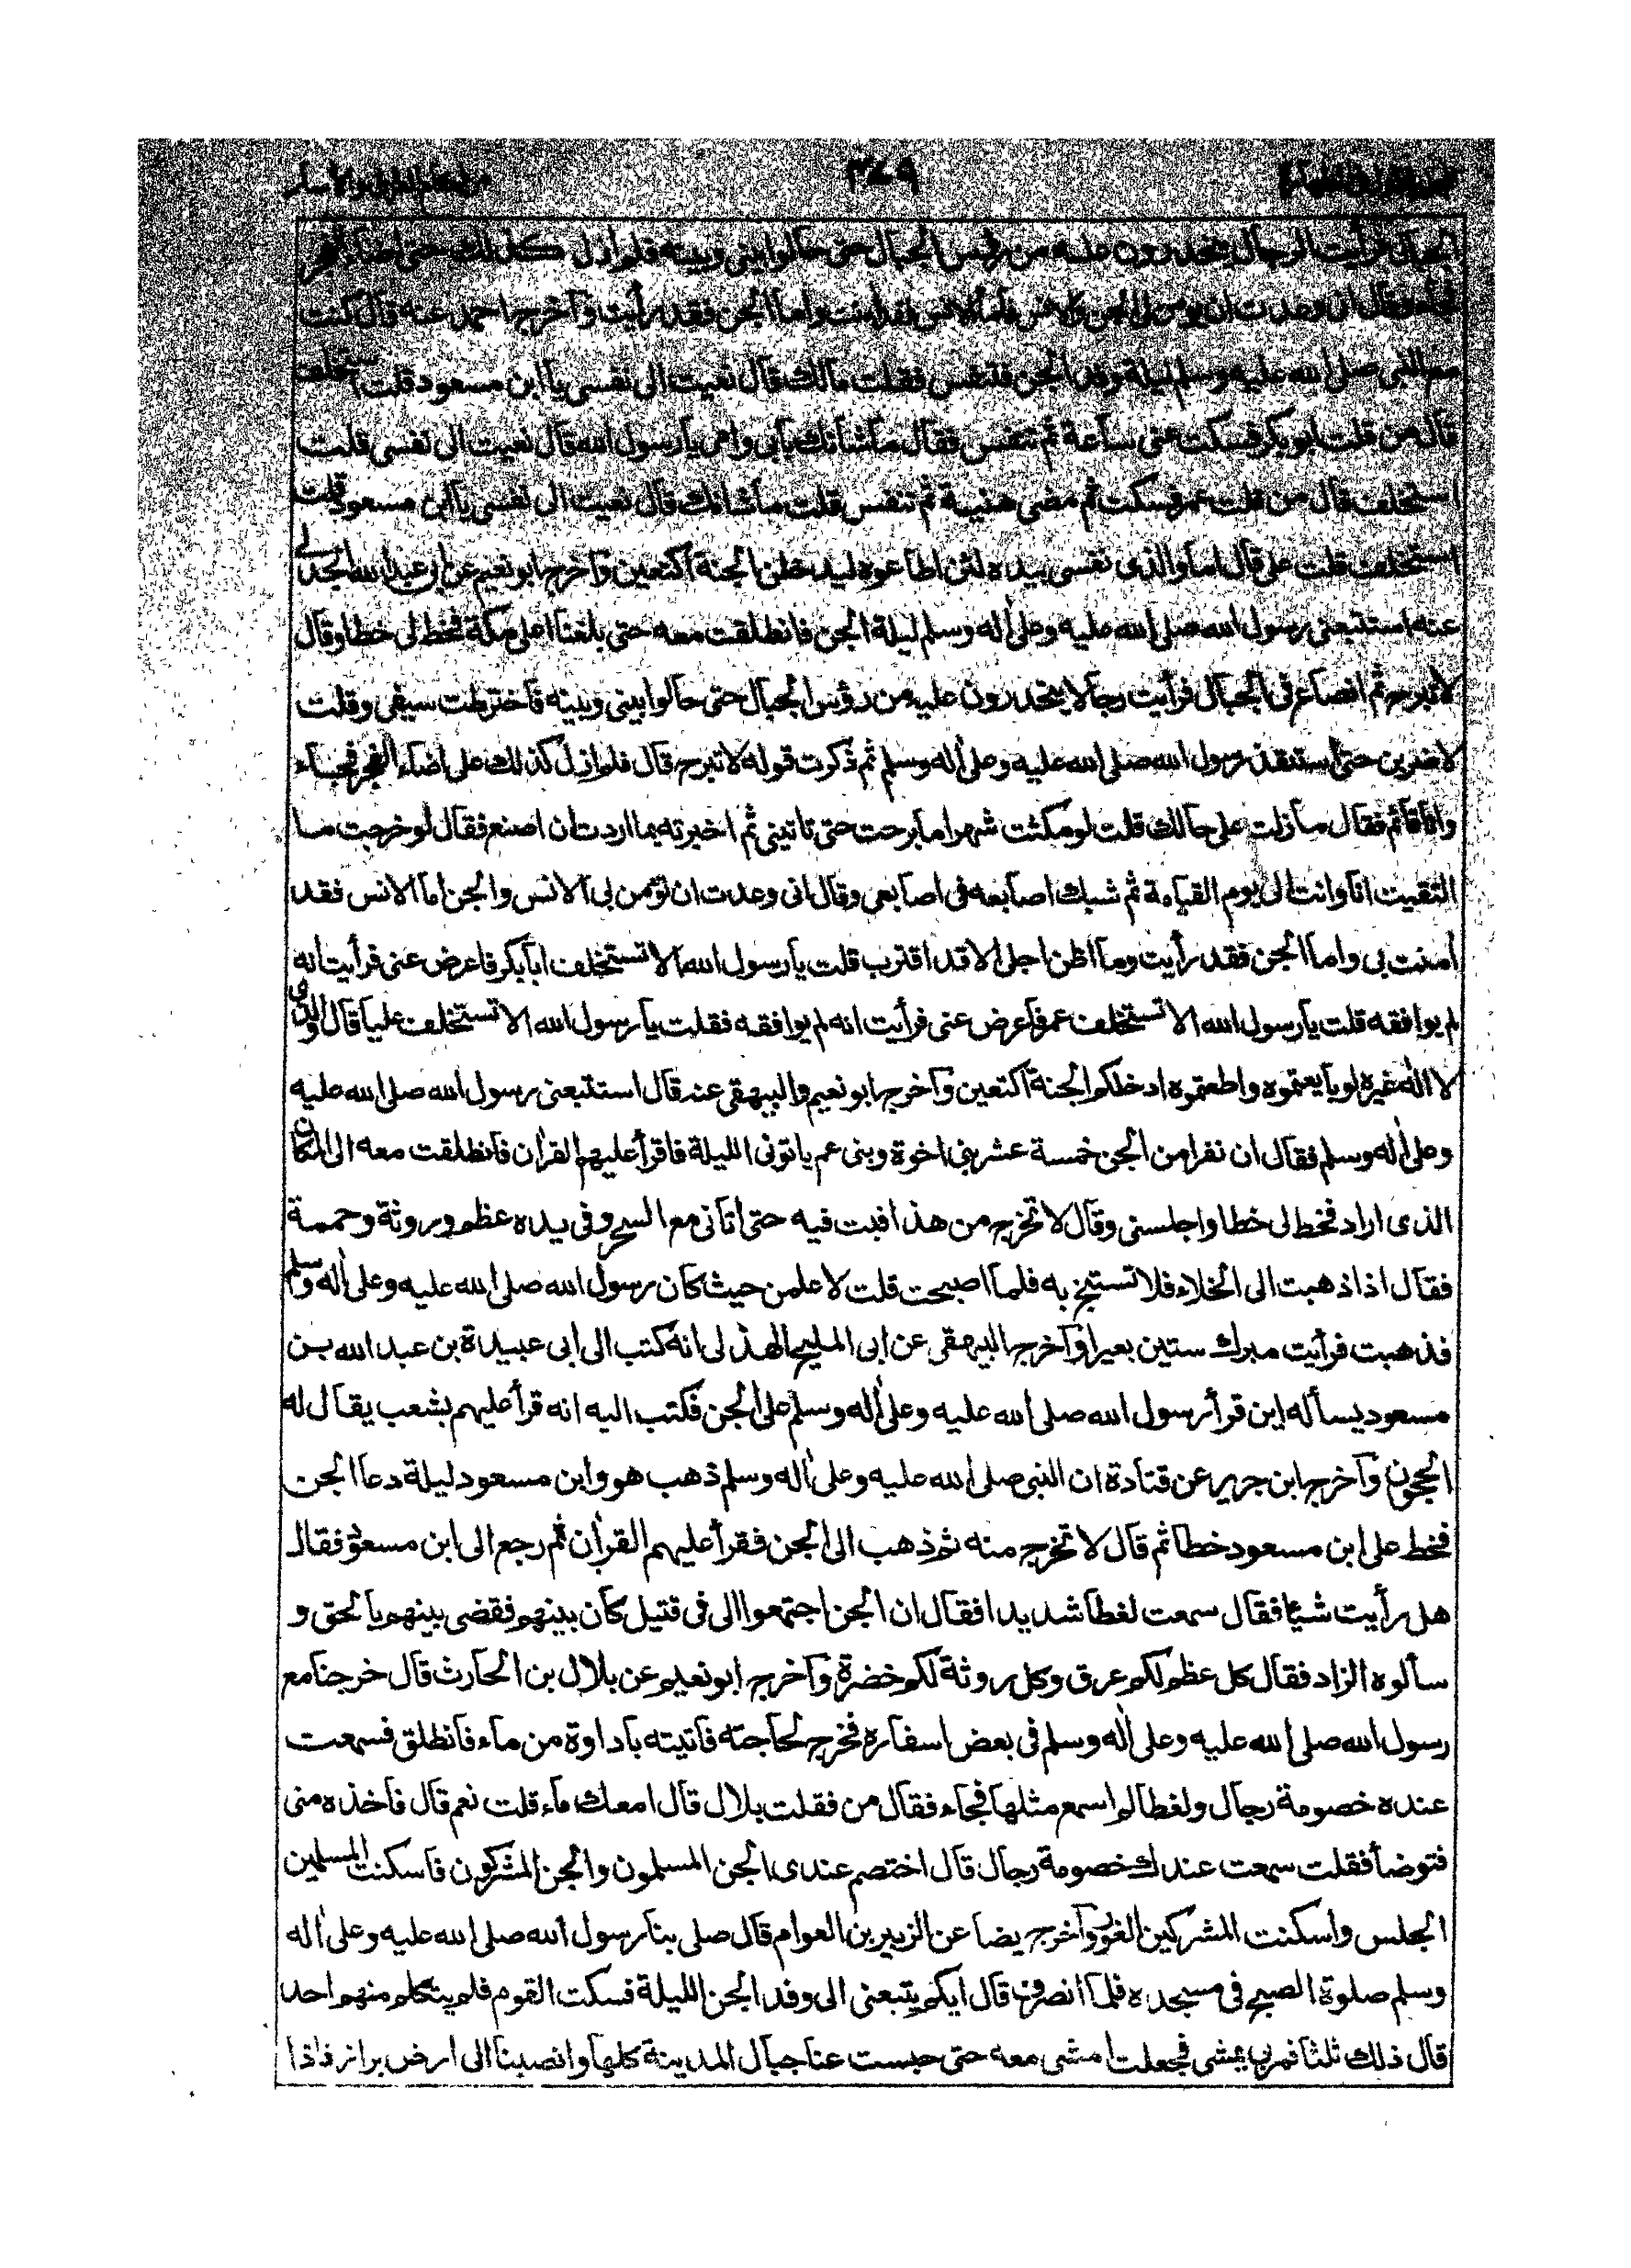 ٣٤٩
الجبال فرأيت الرجال يتحدرون عليه من رؤس الجبال حتى حالوا بينى وبينه فلم ازل كذلك حتى اضاء الفجر
فجاء وقال انى وعدت ان يؤمن بى الجن والانس فاما الانس فقد آمنت واما الجن فقد رأيت وآخرج احمد عنه قال كنت
مع النبى صلى الله عليه وسلم ليلة وفد الجن فتنفس فقلت مالك قال نعيت الى نفسى يا ابن مسعود قلت استخلف
قال من قلت ابو بكر فسكت عنى ساعة ثم تنفس فقال ما شانك بابى وامى يا رسول الله قال نعيت الى نفسى قلت
استخلف قال من قلت عمر فسكت ثم مضى هنيهة ثم تنفس قلت ما شانك قال نعيت الى نفسى يا ابن مسعود قلت
استخلف قلت على قال اما والذى نفسى بيده لئن اطاعوه ليدخلن الجنة اكتعين وآخرج ابو نعيم عن ابى عبد الله الجدلى
عنه استتبعنى رسول الله صلى الله عليه وعلى اله وسلم ليلة الجن فانطلقت معه حتى بلغنا اعلى مكة فخط لى خطا وقال
لا تبرح ثم انصاع فى الجبال فرأيت رجالا يتحدرون عليه من رؤس الجبال حتى حالوا بينى وبينه فاخترطت سيفى وقلت
لاضربن حتى استنقذ رسول الله صلى الله عليه وعلى اله وسلم ثم ذكرت قوله لا تبرح قال فلم ازل كذلك على اضاء الفجر فجاء
وانا قائم فقال ما زلت على حالك قلت لو مكثت شهرا ما برحت حتى تاتينى ثم اخبرته بما اردت ان اصنع فقال لو خرجت ما
التقيت انا وانت الى يوم القيامة ثم شبك اصابعه فى اصابعى وقال انى وعدت ان تؤمن بى الانس والجن اما الانس فقد
آمنت بى واما الجن فقد رأيت وما اظن اجلى الا قد اقترب قلت يا رسول الله الا تستخلف ابا بكر فاعرض عنى فرأيت انه
لم يوافقه قلت يا رسول الله الا تستخلف عمر فاعرض عنى فرأيت انه لم يوافقه فقلت يا رسول الله الا تستخلف عليا قال والذى
لا اله غيره لو بايعتموه واطعتموه ادخلكم الجنة اكتعين وآخرج ابو نعيم والبيهقى عنه قال استتبعنى رسول الله صلى الله عليه
وعلى اله وسلم فقال ان نفرا من الجن خمسة عشر بنى اخوة وبنى عم ياتونى الليلة فاقرأ عليهم القران فانطلقت معه الى المكان
الذى اراد فخط لى خطا واجلسنى وقال لا تخرج من هذا فبت فيه حتى اتانى مع السحر وفى يده عظم وروثة وحممة
فقال اذا ذهبت الى الخلاء فلا تستنج به فلما اصبحت قلت لاعلمن حيث كان رسول الله صلى الله عليه وعلى اله وسلم
فذهبت فرأيت مبرك ستين بعيرا وآخرج البيهقى عن ابى المليح الهذلى انه كتب الى ابى عبيدة بن عبد الله بن
مسعود يسأله اين قرأ رسول الله صلى الله عليه وعلى اله وسلم على الجن فكتب اليه انه قرأ عليهم بشعب يقال له
الحجون وآخرج ابن جرير عن قتادة ان النبى صلى الله عليه وعلى اله وسلم ذهب هو وابن مسعود ليلة دعا الجن
فخط على ابن مسعود خطا ثم قال لا تخرج منه ثم ذهب الى الجن فقرأ عليهم القران ثم رجع الى ابن مسعود فقال
هل رأيت شيئا فقال سمعت لغطا شديدا فقال ان الجن اجتمعوا الى فى قتيل كان بينهم فقضى بينهم بالحق و
سألوه الزاد فقال كل عظم لكم عرق وكل روثة لكم خضرة وآخرج ابو نعيم عن بلال بن الحارث قال خرجنا مع
رسول الله صلى الله عليه وعلى اله وسلم فى بعض اسفاره فخرج لحاجته فاتيته باداوة من ماء فانطلق فسمعت
عنده خصومة رجال ولغطا لم اسمع مثلها فجاء فقال من فقلت بلال قال امعك ماء قلت نعم قال فاخذه منى
فتوضأ فقلت سمعت عندك خصومة رجال قال اختصم عندى الجن المسلمون والجن المشركون فاسكنت المسلمين
الجلس واسكنت المشركين الغور وآخرج يضا عن الزبير بن العوام قال صلى بنا رسول الله صلى الله عليه وعلى اله
وسلم صلوة الصبح فى مسجده فلما انصرف قال ايكم يتبعنى الى وفد الجن الليلة فسكت القوم فلم يتكلم منهم احد
قال ذلك ثلثا فمر بى يمشى فجعلت امشى معه حتى حبست عنا جبال المدينة كلها وانصبنا الى ارض براز فاذا